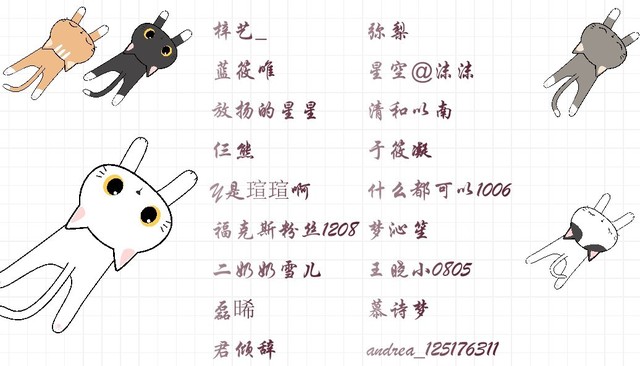 梓艺_ 弥梨
蓝筱唯 星空@沫沫
放扬的星星 清和以南
仨熊 于筱凝
y是瑄瑄啊 什么都可以1006
福克斯粉丝1208 梦沁笙
二奶奶雪儿 王晓小0805
磊晞 慕诗梦
君倾辞 andrea_125176311